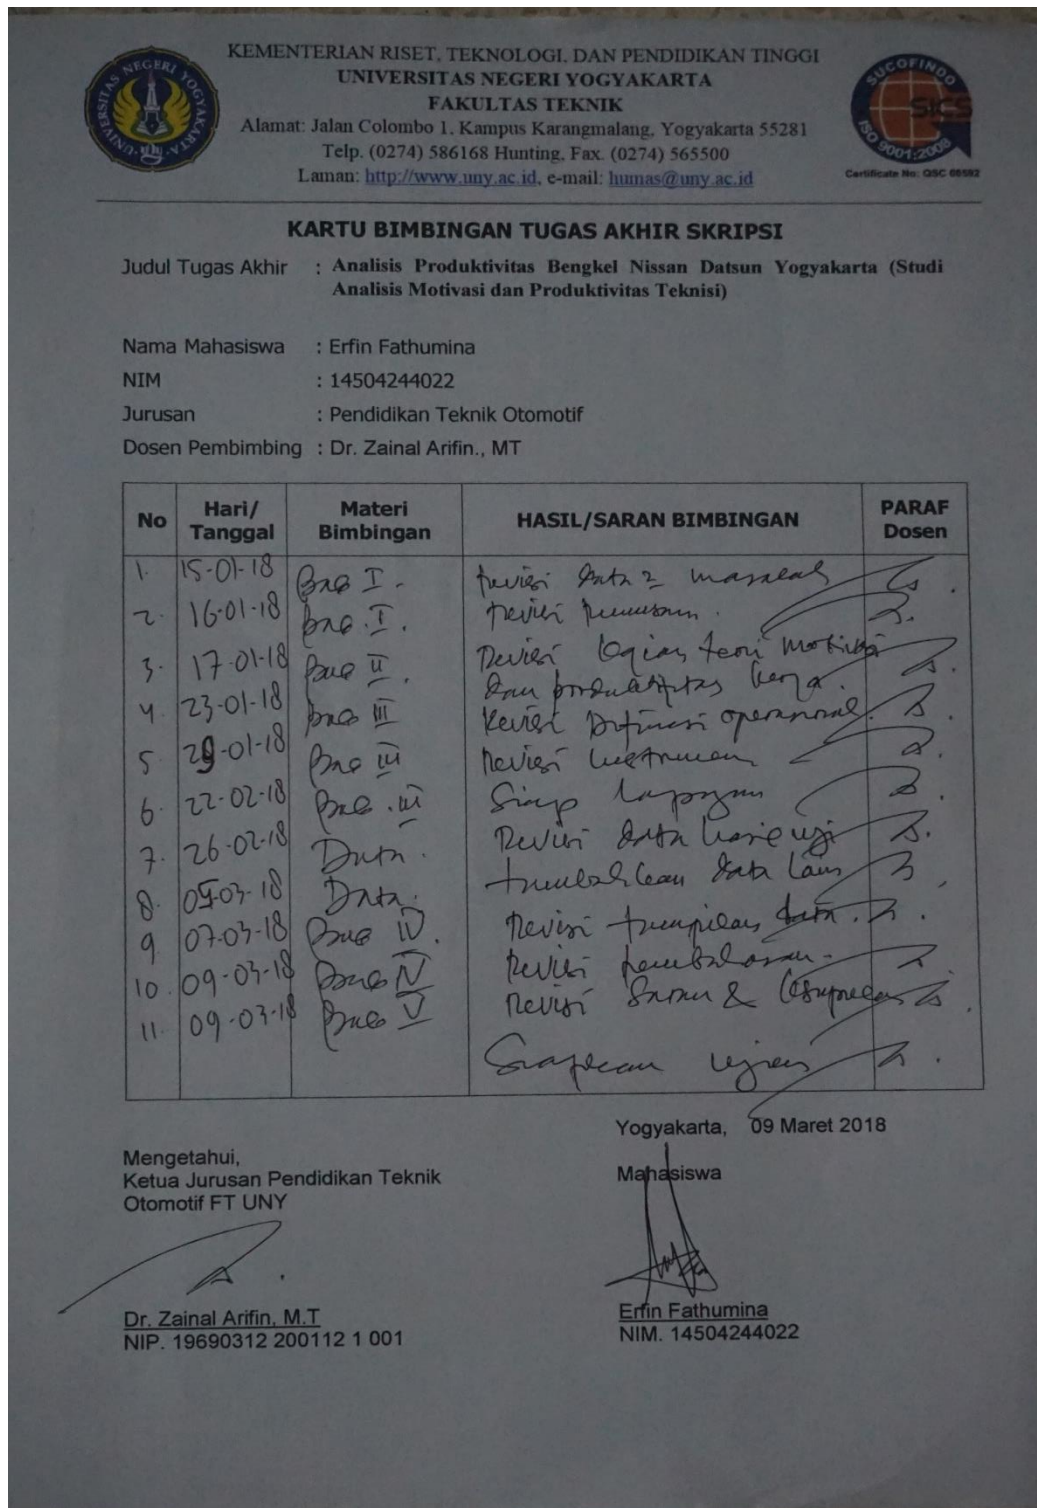 KEMENTERIAN RISET, TEKNOLOGI, DAN PENDIDIKAN TINGGI
UNIVERSITAS NEGERI YOGYAKARTA
FAKULTAS TEKNIK
Alamat: Jalan Colombo 1, Kampus Karangmalang, Yogyakarta 55281
Telp. (0274) 586168 Hunting, Fax. (0274) 565500
Laman: http://www.uny.ac.id, e-mail: humas@uny.ac.id
UNIVERSITAS NEGERI YOGYAKARTA
SUCOFINDO
SICS
ISO 9001:2008
Certificate No: QSC 00592
KARTU BIMBINGAN TUGAS AKHIR SKRIPSI
Judul Tugas Akhir : Analisis Produktivitas Bengkel Nissan Datsun Yogyakarta (Studi
Analisis Motivasi dan Produktivitas Teknisi)
Nama Mahasiswa : Erfin Fathumina
NIM : 14504244022
Jurusan : Pendidikan Teknik Otomotif
Dosen Pembimbing : Dr. Zainal Arifin., MT
No Hari/Tanggal Materi Bimbingan HASIL/SARAN BIMBINGAN PARAF Dosen
1. 15-01-18 Bab I. Revisi data2 masalah
2. 16-01-18 Bab I. Revisi rumusan.
3. 17-01-18 Bab II. Revisi kajian teori motivasi
dan produktifitas kerja.
4. 23-01-18 Bab III Revisi Definisi operasional.
5 29-01-18 Bab III Revisi Instrumen
6. 22-02-18 Bab III Siap lapangan
7. 26-02-18 Data. Revisi data hasil uji
8. 05-03-18 Data. tambahkan data lain
9 07-03-18 Bab IV. Revisi tampilan data.
10. 09-03-18 Bab IV Revisi pembahasan.
11. 09-03-18 Bab V Revisi Saran & kesimpulan
Siapkan ujian
Yogyakarta, 09 Maret 2018
Mengetahui,
Ketua Jurusan Pendidikan Teknik
Otomotif FT UNY
Mahasiswa
Dr. Zainal Arifin, M.T
NIP. 19690312 200112 1 001
Erfin Fathumina
NIM. 14504244022